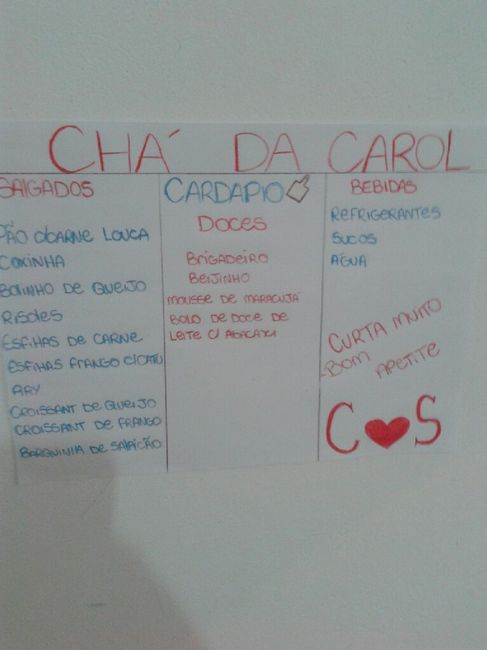 CHÁ DA CAROL
SALGADOS
PÃO C/CARNE LOUCA
COXINHA
BOLINHO DE QUEIJO
RISOLES
ESFIHAS DE CARNE
ESFIHAS FRANGO C/CATU
ARY
CROISSANT DE QUEIJO
CROISSANT DE FRANGO
DE
CARDAPIO
DOCES
BRIGADEIRO
BEIJINHO
MOUSSE DE MARACUJÁ
BOLO DE DOCE DE
LEITE C/ ABACAXI
BEBIDAS
REFRIGERANTES
SUCOS
ÁGUA
CURTA MUITO
BOM APETITE
C S